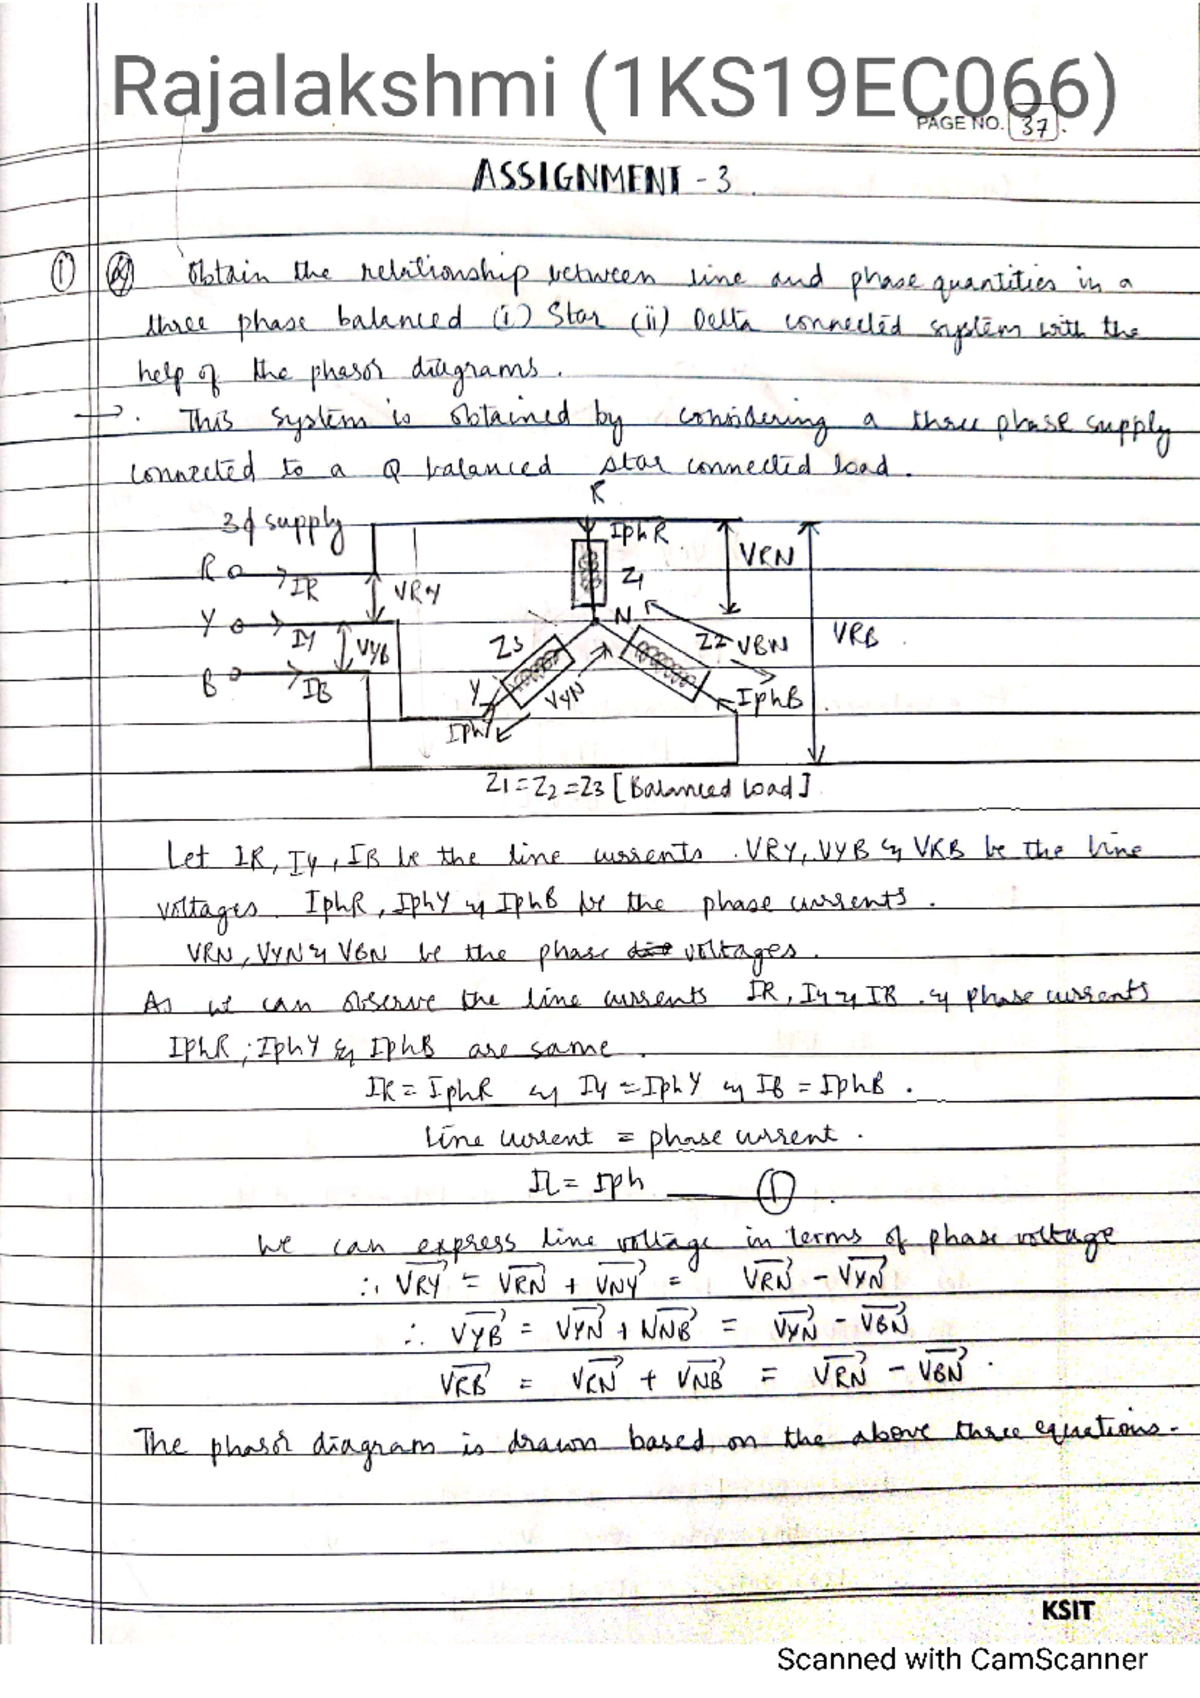 Rajalakshmi (1KS19EC066)
PAGE NO. 37.
ASSIGNMENT - 3.
① Obtain the relationship between line and phase quantities in a
three phase balanced (i) Star (ii) Delta connected system with the
help of the phasor diagrams.
→. This system is obtained by considering a three phase supply
connected to a balanced star connected load.
R
3ϕ supply
IphR
VRN
R
IR
VRY
Z1
Y
IY
VYB
N
Z3
Z2
VBN
VRB
B
IB
Y
VYN
IphB
IphY
Z1=Z2=Z3 [Balanced load]
Let IR, IY, IB be the line currents. VRY, VYB & VRB be the line
voltages. IphR, IphY & IphB be the phase currents.
VRN, VYN & VBN be the phase voltages.
As we can observe the line currents IR, IY & IB. & phase currents
IphR, IphY & IphB are same.
IR = IphR & IY = IphY & IB = IphB.
Line current = phase current.
IL = Iph ——— ①
We can express line voltage in terms of phase voltage
∴ VRY = VRN + VNY = VRN - VYN
∴ VYB = VYN + VNB = VYN - VBN
VRB = VRN + VNB = VRN - VBN.
The phasor diagram is drawn based on the above three equations.
KSIT
Scanned with CamScanner